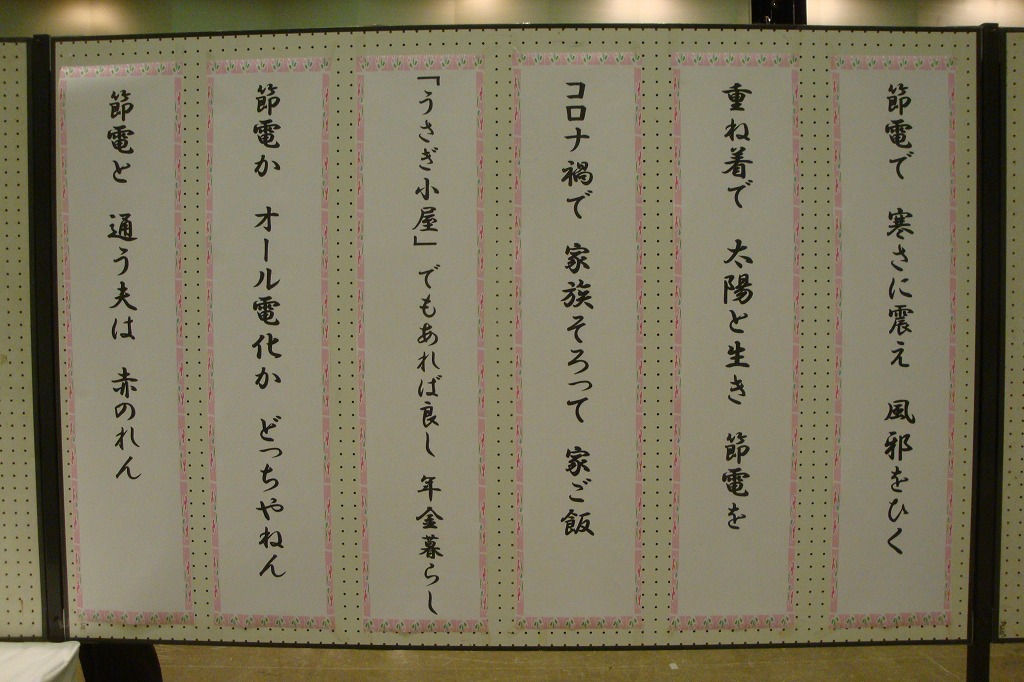 節電で 寒さに震え 風邪をひく
重ね着で 太陽と生き 節電を
コロナ禍で 家族そろって 家ご飯
「うさぎ小屋」でもあれば良し 年金暮らし
節電か オール電化か どっちやねん
節電と 通う夫は 赤のれん